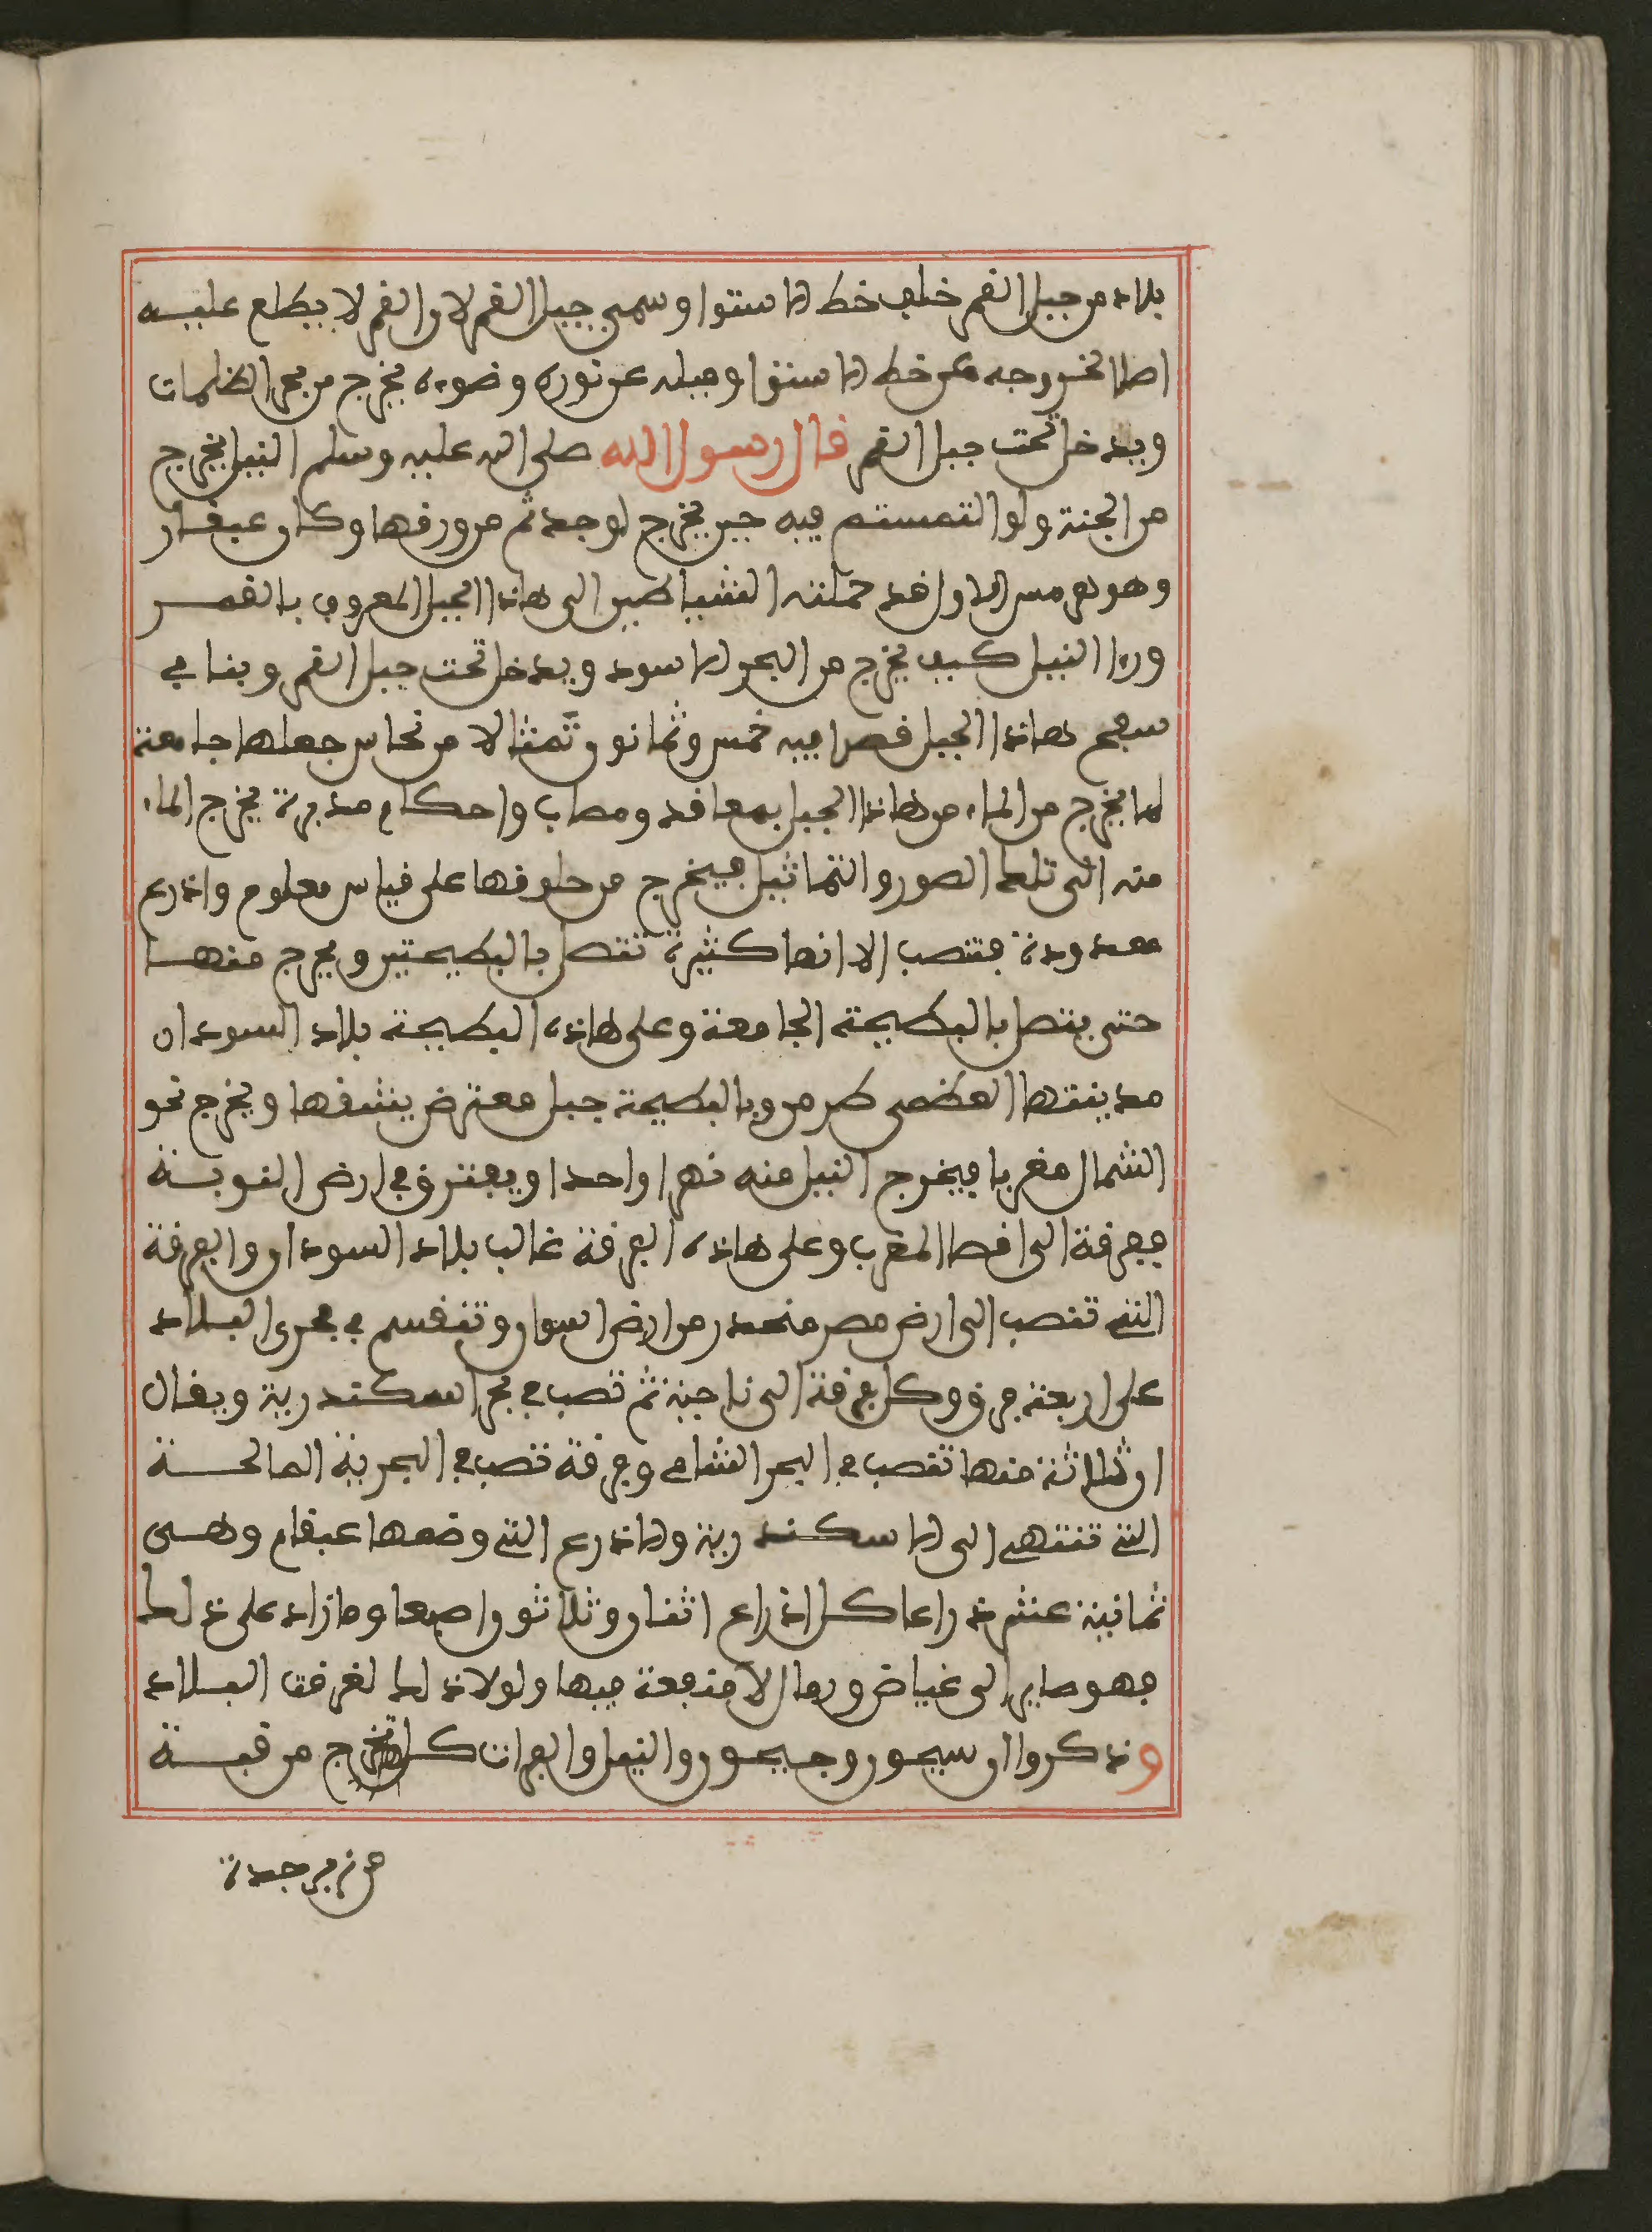 بلاد من جبل القمر خلف خط الاستوا وسمي جبل القمر لان القمر لا يطلع عليه
اصلا لخروجه عن خط الاستوا وميله عن نوره وضوءه يخرج من بحر الظلمات
ويدخل تحت جبل القمر قال رسول الله صلى الله عليه وسلم النيل يخرج
من الجنة ولو التمستم فيه حين يخرج لوجدتم من ورقها وكان عبقار
وهو هرمس الاول قد حملته الشياطين الى هاذا الجبل المعروف بالقمر
ورءا النيل كيف يخرج من البحر الاسود ويدخل تحت جبل القمر وبنا في
سفح هاذا الجبل قصرا فيه خمس وثمانون تمثالا من نحاس جعلها جامعة
لما يخرج من الماء من هاذا الجبل بمعاقد ومصاب واحكام مدبرة يخرج الماء
منه الى تلك الصور والتماثيل فيخرج من حلوقها على قياس معلوم واذرع
معدودة فتنصب الا انها كثيرة تتصل بالبطيحتين ويخرج منها
حتى يتصل بالبطيحة الجامعة وعلى هاذه البطيحة بلاد السودان
مدينتها العظمى طرمرو بالبطيحة جبل معترض يشقها ويخرج نحو
الشمال مغربا فيخرج النيل منه نهرا واحدا ويفترق في ارض النوبة
ففرقة الى اقصا المغرب وعلى هاذه الفرقة غالب بلاد السودان والفرقة
التي تنصب الى ارض مصر منحدر من ارض اسوان وتنقسم في مجرى البلاد
على اربعة فرق وكل فرقة الى ناحية ثم تصب في بحر اسكندرية ويقال
ان ثلاثة منها تنصب في البحر الشامي وفرقة تصب في البحرية المالحة
التي تنتهي الى الاسكندرية والاذرع التي وضعها عبقام وهى
ثمانية عشر ذراعا كل اذراع اثنان وثلاثون اصبعا وما زاد على ذلك
فهو صاير الى غياض ورمال لا منفعة فيها ولولا ذلك لغرقت البلاد
وذكروا ان سيحون وجيحون والنيل والفرات كل تخرج من قبة
من زبرجدة